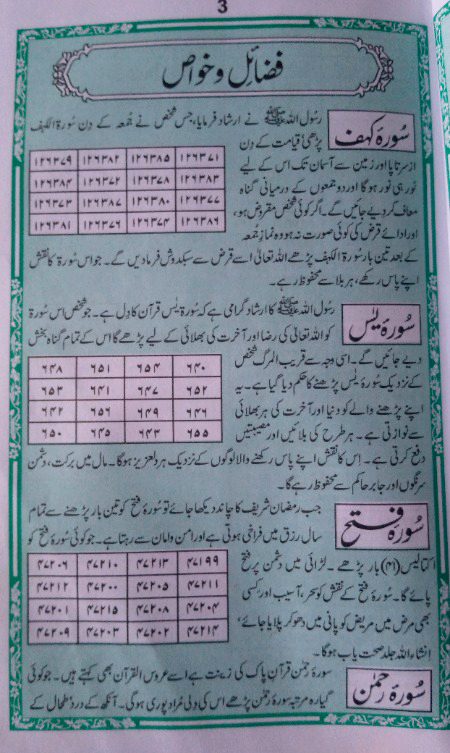 3
فضائل و خواص
سورۂ کہف
رسول اللہ ﷺ نے ارشاد فرمایا، جس شخص نے جمعہ کے دن سورۃ الکہف
پڑھی قیامت کے دن
از سر تا پا اور زمین سے آسمان تک اس کے لیے
نور ہی نور ہوگا اور دو جمعوں کے درمیانی گناہ
معاف کر دیے جائیں گے۔ اگر کوئی شخص مقروض ہو،
اور ادائے قرض کی کوئی صورت نہ ہو وہ نماز جمعہ
۱۲۶۳۷۱ ۱۲۶۳۸۵ ۱۲۶۳۸۲ ۱۲۶۳۷۹
۱۲۶۳۸۳ ۱۲۶۳۷۸ ۱۲۶۳۷۲ ۱۲۶۳۸۴
۱۲۶۳۷۷ ۱۲۶۳۸۰ ۱۲۶۳۸۷ ۱۲۶۳۷۳
۱۲۶۳۸۶ ۱۲۶۳۷۴ ۱۲۶۳۷۶ ۱۲۶۳۸۱
کے بعد تین بار سورۃ الکہف پڑھے اللہ تعالی اسے قرض سے سبکدوش فرمادیں گے۔ جو اس سورۃ کا نقش
اپنے پاس رکھے، ہر بلا سے محفوظ رہے۔
سورۂ یٰس
رسول اللہ ﷺ کا ارشاد گرامی ہے کہ سورۃ یٰس قرآن کا دل ہے۔ جو شخص اس سورۃ
کو اللہ تعالی کی رضا اور آخرت کی بھلائی کے لیے پڑھے گا اس کے تمام گناہ بخش
دیے جائیں گے۔ اسی وجہ سے قریب المرگ شخص
کے نزدیک سورۂ یٰس پڑھنے کا حکم دیا گیا ہے۔ یہ
اپنے پڑھنے والے کو دنیا اور آخرت کی ہر بھلائی
سے نوازتی ہے۔ ہر طرح کی بلائیں اور مصیبتیں
۶۴۰ ۶۵۴ ۶۵۱ ۶۴۸
۶۵۲ ۶۴۷ ۶۴۱ ۶۵۳
۶۴۶ ۶۴۹ ۶۵۶ ۶۴۲
۶۵۵ ۶۴۳ ۶۴۵ ۶۵۰
دفع کرتی ہے۔ اس کا نقش اپنے پاس رکھنے والا لوگوں کے نزدیک ہر لعزیز ہوگا۔ مال میں برکت، دشمن
سرنگوں اور جابر حاکم سے محفوظ رہے گا۔
سورۂ فتح
جب رمضان شریف کا چاند دیکھا جائے تو سورۂ فتح کو تین بار پڑھنے سے تمام
سال رزق میں فراخی ہوتی ہے اور امن و امان سے رہتا ہے۔ جو کوئی سورۂ فتح کو
اکتالیس (۴۱) بار پڑھے۔ لڑائی میں دشمن پر فتح
پائے گا۔ سورۂ فتح کے نقش کو سحر، آسیب اور کسی
بھی مرض میں مریض کو پانی میں دھو کر پلایا جائے،
انشاء اللہ جلد صحت یاب ہوگا۔
۴۷۱۹۹ ۴۷۲۱۳ ۴۷۲۱۰ ۴۷۲۰۶
۴۷۲۱۱ ۴۷۲۰۵ ۴۷۲۰۰ ۴۷۲۱۲
۴۷۲۰۴ ۴۷۲۰۸ ۴۷۲۱۵ ۴۷۲۰۱
۴۷۲۱۴ ۴۷۲۰۲ ۴۷۲۰۳ ۴۷۲۰۹
سورۂ رحمٰن
سورۂ رحمٰن قرآن پاک کی زینت ہے اسے عروس القرآن بھی کہتے ہیں۔ جو کوئی
گیارہ مرتبہ سورۂ رحمٰن پڑھے اس کی دلی مراد پوری ہوگی۔ آنکھ کے درد و طحال کے